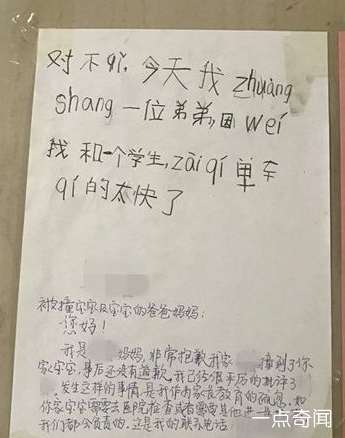 对不qǐ,今天我zhuàng
shang一位弟弟,因wéi
我和一个学生,zài qí单车
qí的太快了
被撞宝宝及宝宝的爸爸妈妈:
您好!
我是 妈妈,非常抱歉我家 撞到了你
家宝宝,事后还没有道歉。我已经很严厉的批评了
发生这样的事情是我作为家长教育的 如
你家宝宝需要去医院检查或者需要其他
我们都会负责的,这是我的联系电话
一点奇闻